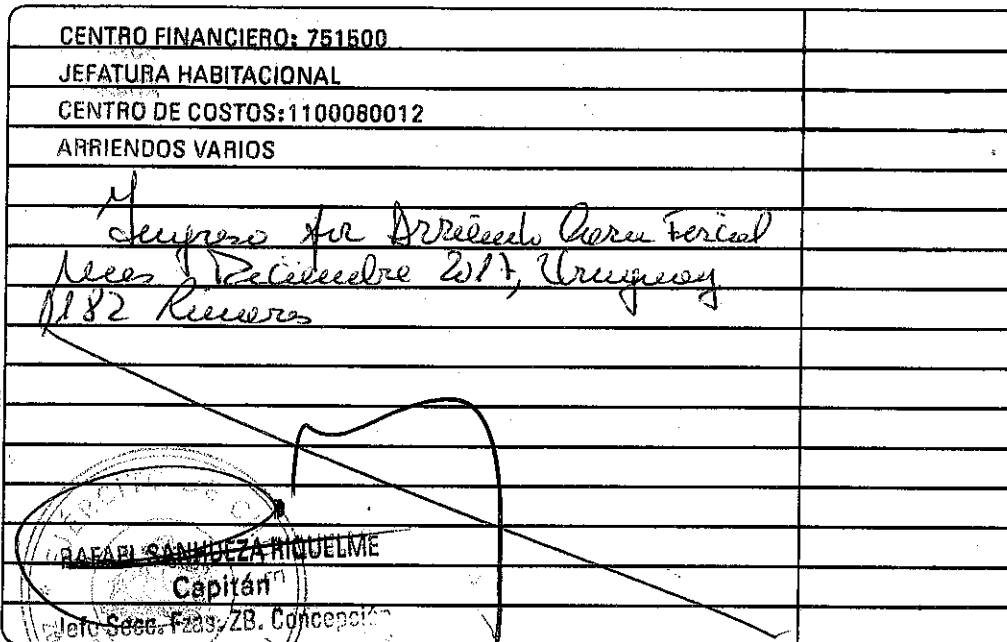 CENTRO FINANCIERO: 751500
JEFATURA HABITACIONAL
CENTRO DE COSTOS:1100080012
ARRIENDOS VARIOS
Ingreso por Arriendo Casa Fiscal
Mes Diciembre 2017, Uruguay
1182
EJERCITO DE
RAFAEL SANHUEZA RIQUELME
Capitán
Jefe Secc. Fzas. ZB. Concepción